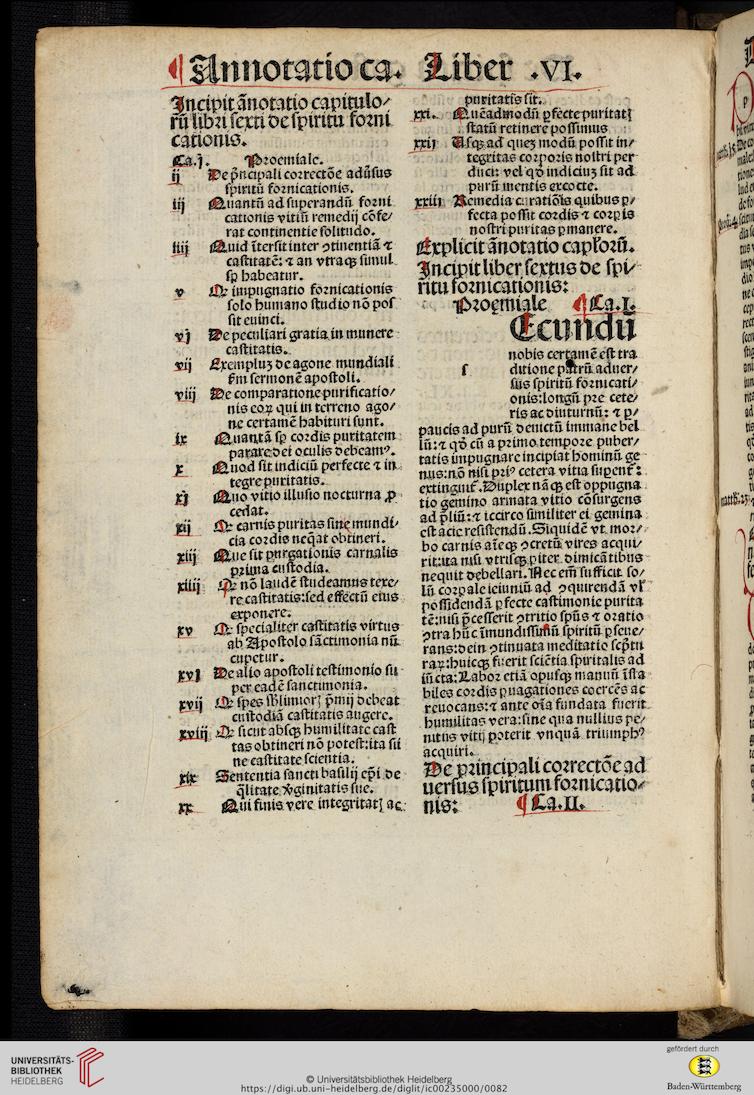 ¶ Annotatio ca. Liber .VI.
Incipit ãnotatio capitulo/
rũ libri sexti de spiritu forni
cationis.
Ca.j. Proemiale.
ij De p̃ncipali correctõe adũsus
spiritũ fornicationis.
iij Quantũ ad superandũ forni
cationis vitiũ remedij cõfe/
rat continentie solitudo.
iiij Quid ĩtersit inter ꝯtinentiã ⁊
castitatẽ: ⁊ an vtraqꝫ simul
sp̱ habeatur.
v Qꝛ impugnatio fornicationis
solo humano studio nõ pos
sit euinci.
vj De peculiari gratia in munere
castitatis.
vij Exempluꝫ de agone mundiali
ẜm sermonẽ apostoli.
viij De comparatione purificatio/
nis eoꝝ qui in terreno ago/
ne certamẽ habituri sunt.
ix Quantã sp̱ cordis puritatem
parare dei oculis debeamꝰ.
x Quod sit indiciũ perfecte ⁊ in
tegre puritatis.
xj Quo vitio illusio nocturna ꝓ
cedat.
xij Qꝛ carnis puritas sine mundi/
cia cordis neq̃at obtineri.
xiij Que sit purgationis carnalis
prima custodia.
xiiij Qꝛ nõ laudẽ studeamus texe/
re castitatis:sed effectũ eius
exponere.
xv Qꝛ specialiter castitatis virtus
ab Apostolo sãctimonia nũ
cupetur.
xvj De alio apostoli testimonio su
per eadẽ sanctimonia.
xvij Qꝛ spes sublimioꝝ p̃mij debeat
custodiã castitatis augere.
xviij Qꝛ sicut absqꝫ humilitate casti
tas obtineri nõ potest:ita si
ne castitate scientia.
xix Sententia sancti basilij ep̃i de
q̃litate ṽginitatis sue.
xx Qui finis vere integritatꝭ ac
puritatis sit.
xxi. Quẽadmodũ ꝑfecte puritatꝭ
statũ retinere possimus
xxij Usqꝫ ad queꝫ modũ possit in/
tegritas corporis nostri per
duci: vel qõ indiciuꝫ sit ad
purũ mentis excocte.
xxiij Remedia curatiõis quibus ꝑ/
fecta possit cordis ⁊ corꝑis
nostri puritas ꝑmanere.
Explicit ãnotatio capl'orũ.
Incipit liber sextus de spi/
ritu fornicationis:
Proemiale ¶ Ca.I.
s Ecundũ
nobis certamẽ est tra
ditione patrũ aduer/
sus spiritũ fornicati/
onis:longũ pre cete/
ris ac diuturnũ: ⁊ ꝑ/
paucis ad purũ deuictũ immane bel
lũ: ⁊ qõ cũ a primo tempore puber/
tatis impugnare incipiat hominũ ge
nus:nõ nisi priꝰ cetera vitia suꝑent̃:
extinguit̃. Duplex nãqꝫ est oppugna
tio gemino armata vitio cõsurgens
ad p̃liũ:⁊ iccirco similiter ei gemina
est acie resistendũ. Siquidẽ vt mor/
bo carnis aĩeqꝫ ꝯcretũ vires acqui/
rit:ita nisi vtrisqꝫ ꝑiter dimicãtibus
nequit debellari. Nec em̃ sufficit so/
lũ corꝑale ieiuniũ ad ꝯquirendã vl'
possidendã ꝑfecte castimonie purita
tẽ:nisi p̃cesserit ꝯtritio sp̃us ⁊ oratio
ꝯtra hũc ĩmundissimũ spiritũ ꝑseue/
rans:dein ꝯtinuata meditatio scp̃tu
raꝝ:huicqꝫ fuerit sciẽtia spiritalis ad
iũcta:Labor etiã opusqꝫ manuũ ĩsta
biles cordis ꝑuagationes coercẽs ac
reuocans:⁊ ante oĩa fundata fuerit
humilitas vera:sine qua nullius pe/
nitus vitij poterit vnquã triũmphꝰ
acquiri.
De principali correctõe ad
uersus spiritum fornicatio/
nis: ¶ Ca.II.
UNIVERSITÄTS-
BIBLIOTHEK
HEIDELBERG
© Universitätsbibliothek Heidelberg
https://digi.ub.uni-heidelberg.de/diglit/ic00235000/0082
gefördert durch
Baden-Württemberg